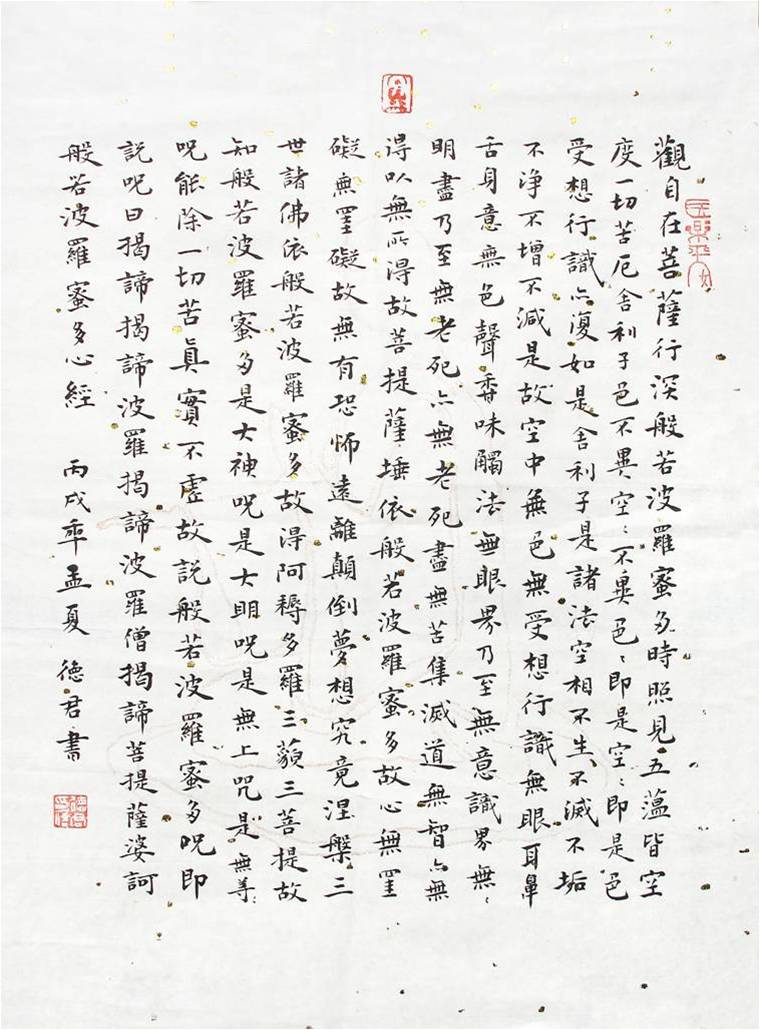 觀自在菩薩行深般若波羅蜜多時照見五蘊皆空
度一切苦厄舍利子色不異空〻不異色〻即是空〻即是色
受想行識亦復如是舍利子是諸法空相不生不滅不垢
不淨不增不減是故空中無色無受想行識無眼耳鼻
舌身意無色聲香味觸法無眼界乃至無意識界無〻
明盡乃至無老死亦無老死盡無苦集滅道無智亦無
得以無所得故菩提薩埵依般若波羅蜜多故心無罣
礙無罣礙故無有恐怖遠離顛倒夢想究竟涅槃三
世諸佛依般若波羅蜜多故得阿耨多羅三藐三菩提故
知般若波羅蜜多是大神呪是大明呪是無上呪是無等〻
呪能除一切苦真實不虛故説般若波羅蜜多呪即
説呪曰揭諦揭諦波羅揭諦波羅僧揭諦菩提薩婆訶
般若波羅蜜多心經 丙戌年孟夏 德君書